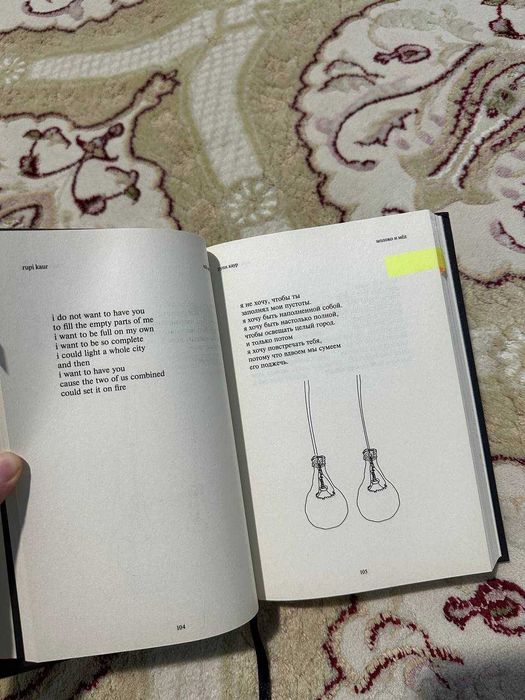 rupi kaur
i do not want to have you
to fill the empty parts of me
i want to be full on my own
i want to be so complete
i could light a whole city
and then
i want to have you
cause the two of us combined
could set it on fire
104
каур
молоко и мёд
я не хочу, чтобы ты
заполнял мои пустоты.
я хочу быть наполненной собой.
я хочу быть настолько полной,
чтобы освещать целый город.
и только потом
я хочу повстречать тебя,
потому что вдвоем мы сумеем
его поджечь.
105